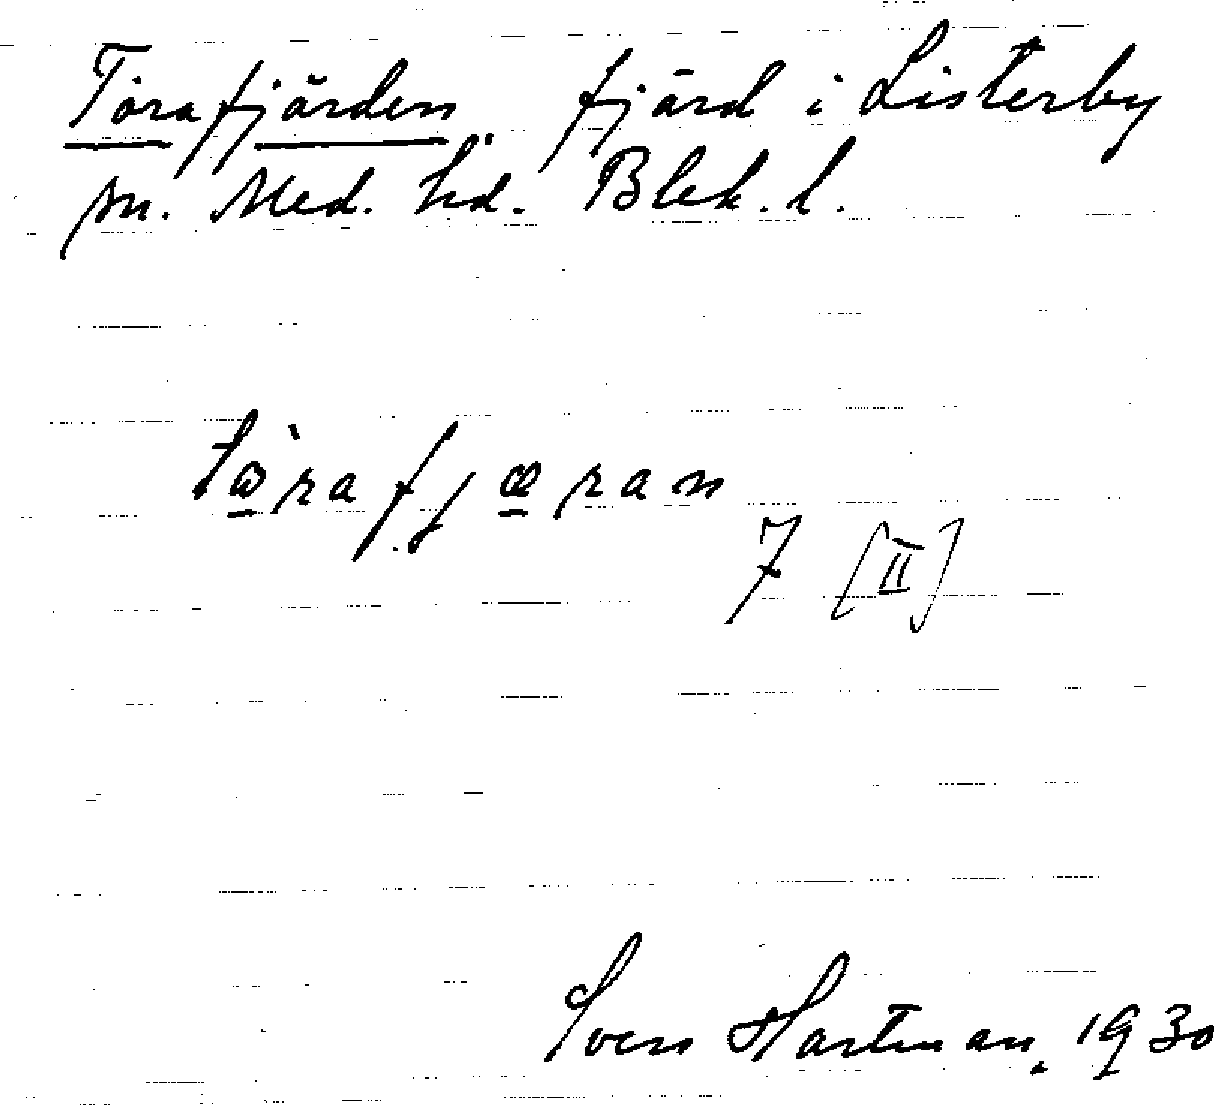 Torafjärden fjärd i Listerby
sn. Med. hd. Blek. l.
tὼ̠rafjæ̠ran
7 [II]
Sven Hartman, 1930